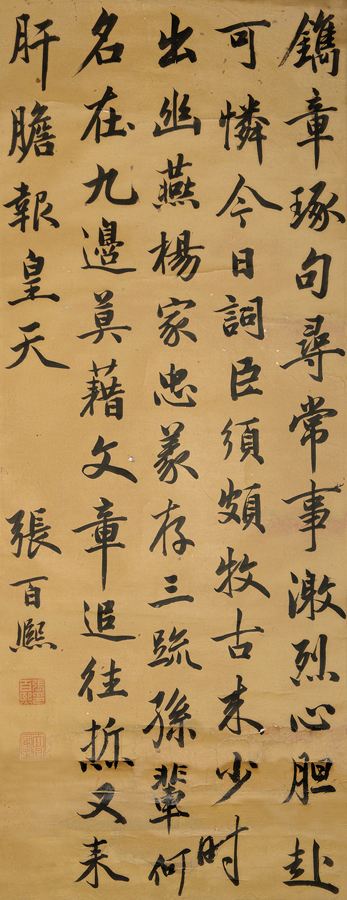 鐫章琢句尋常事激烈心胆赴
可憐今日詞臣須頗牧古来少时
出幽燕楊家忠義存三疏孫輩何
名在九邊莫藉文章追往哲又来
肝膽報皇天
張百熙